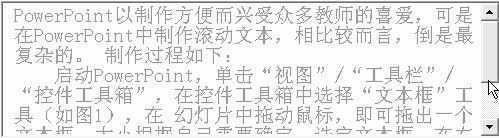 PowerPoint以制作方便而兴受众多教师的喜爱，可是
在PowerPoint中制作滚动文本，相比较而言，倒是最
复杂的。 制作过程如下：
启动PowerPoint，单击“视图”/“工具栏”/
“控件工具箱”，在控件工具箱中选择“文本框”工
具（如图1），在 幻灯片中拖动鼠标，即可拖出一个